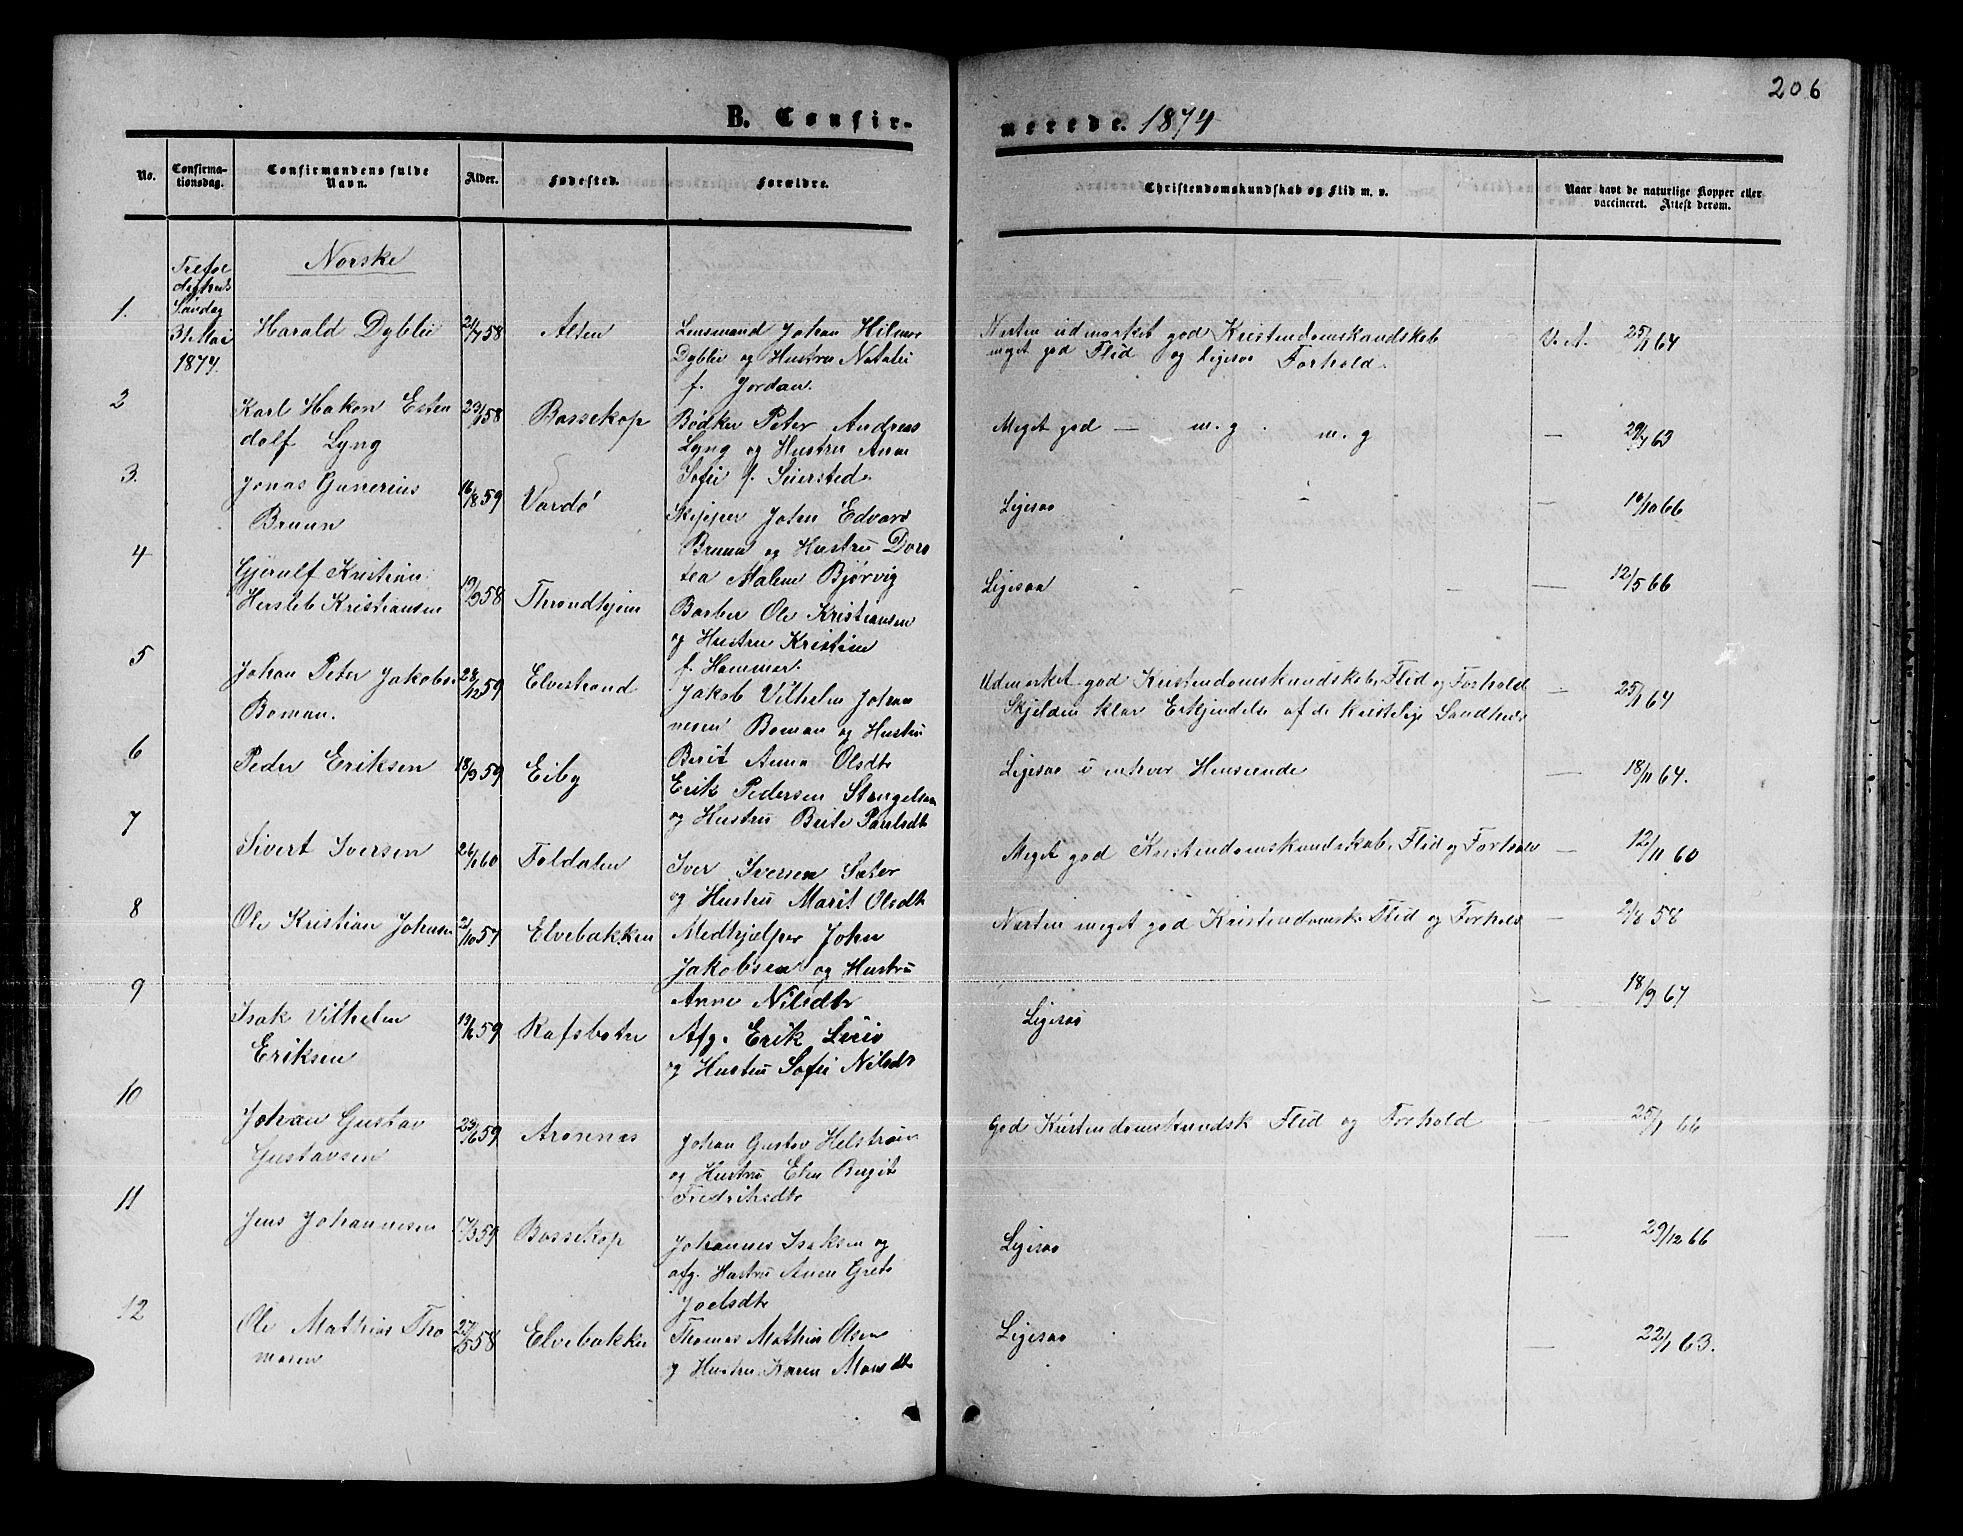 206
B. Confir-
merede. 1874
No.
Confirma-
tionsdag.
Confirmandens fulde
Navn.
Alder.
Fødested.
Forældre.
Christendomskundskab og Flid m. v.
Naar havt de naturlige Kopper eller
vaccineret. Attest derom.
Norske
Søndag
31. Mai
1874.
1. Harald Dyblie 21/7 58 Alten Lensmand Johan Hilmer
Dyblie og Hustru Natalie
f. Jordan.
Næsten udmærket god Kristendomskundskab
meget god Flid og ligesaa Forhold. V. A. 25/1 64
2 Karl Hakon Esten
dolf Lyng
23/1 58 Bossekop Bødker Peter Andreas
Lyng og Hustru Anne
Sofie f. Seiersted.
Meget god — m. g. m. g — 29/7 63
3. Jonas Gunerius
Bruun
16/8 59 Vardø Skipper John Edvard
Bruun og Hustru Doro
tea Malene Bjørvig
Ligesaa — 10/10 66
4 Gjerulf Kristian
Hersleb Kristiansen
19/2 58 Throndhjem Barber Ole Kristiansen
og Hustru Kristine
f. Hammer.
Ligesaa — 12/5 66
5 Johan Peter Jakobsen
Boman.
28/12 59 Elvestrand Jakob Vilhelm Johan
nesen Boman og Hustru
Berit Anna Olsdtr
Udmærket god Kristendomskundskab, Flid og Forhold
Skjelden klar Erkjendelse af de kristelige Sandheder — 25/1 64
6 Peder Eriksen 18/9 59 Eiby
Erik Pedersen Stengelsen
og Hustru Brite Paulsdtr
Ligesaa i enhver Henseende — 18/11 64.
7 Sivert Iversen 26/1 60 Foldalen Iver Iversen Sæter
og Hustru Marit Olsdtr
Meget god Kristendomskundskab, Flid og Forhold — 12/11 60
8 Ole Kristian Johnsen 2/10 57 Elvebakken Medhjælper John
Jakobsen og Hustru
Anne Nilsdtr
Næsten meget god Kristendomsk. Flid og Forhold — 2/8 58
9 Isak Vilhelm
Eriksen
59 Rafsbotn Afg. Erik
og Hustru Sofie Nilsdtr
Ligesaa — 18/9 67
10 Johan Gustav
Gustavsen
23/6 59 Aronnæs Johan Gustav Helstrøm
og Hustru Elen Birgit
Fredriksdtr
God Kristendomskundsk Flid og Forhold — 25/1 66
11 Jens Johannesen 17/3 59 Bossekop Johannes Isaksen og
afg. Hustru Anne Grete
Joelsdtr
Ligesaa — 29/12 66
12 Ole Mathias Tho
masen
27/5 58 Elvebakken Thomas Mathias Olsen
og Hustru Karen Monsdtr
Ligesaa — 22/1 63.